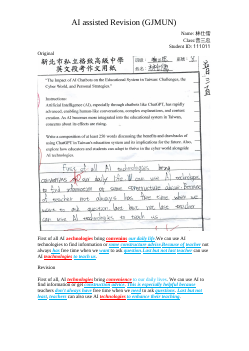 AI assisted Revision (GJMUN)
Name: 林仕儒
Class:普三忠
Student ID: 111011
Original
新北市私立格致高級中學
英文段考作文用紙
"The Impact of AI Chatbots on the Educational System in Taiwan: Challenges, the
Cyber World, and Personal Strategies."
Instructions:
Artificial Intelligence (AI), especially through chatbots like ChatGPT, has rapidly
advanced, enabling human-like conversations, complex explanations, and content
creation. As AI becomes more integrated into the educational system in Taiwan,
concerns about its effects are
Write a composition of at least 250 words discussing the benefits and drawbacks of
using ChatGPT in Taiwan's education system and its implications for the future. Also,
explore how educators and students can adapt to thrive in the cyber world alongside
AI technologies.
First of all AI technologies bring
convenins our daily life. We can use AI
technologies to find information or some constructure advice. Because
of teacher not always has free time when we
want to ask question. Last but not last teacher
can use AI technologies to teach us.
First of all AI technologies bring convenins our daily life.We can use AI
technologies to find information or some constructure advice.Because of teacher not
always has free time when we want to ask question Last but not last teacher can use
AI technologies to teach us.
Revision
First of all, AI technologies bring convenience to our daily lives. We can use AI to
find information or get constructive advice. This is especially helpful because
teachers don't always have free time when we need to ask questions. Last but not
least, teachers can also use AI technologies to enhance their teaching.